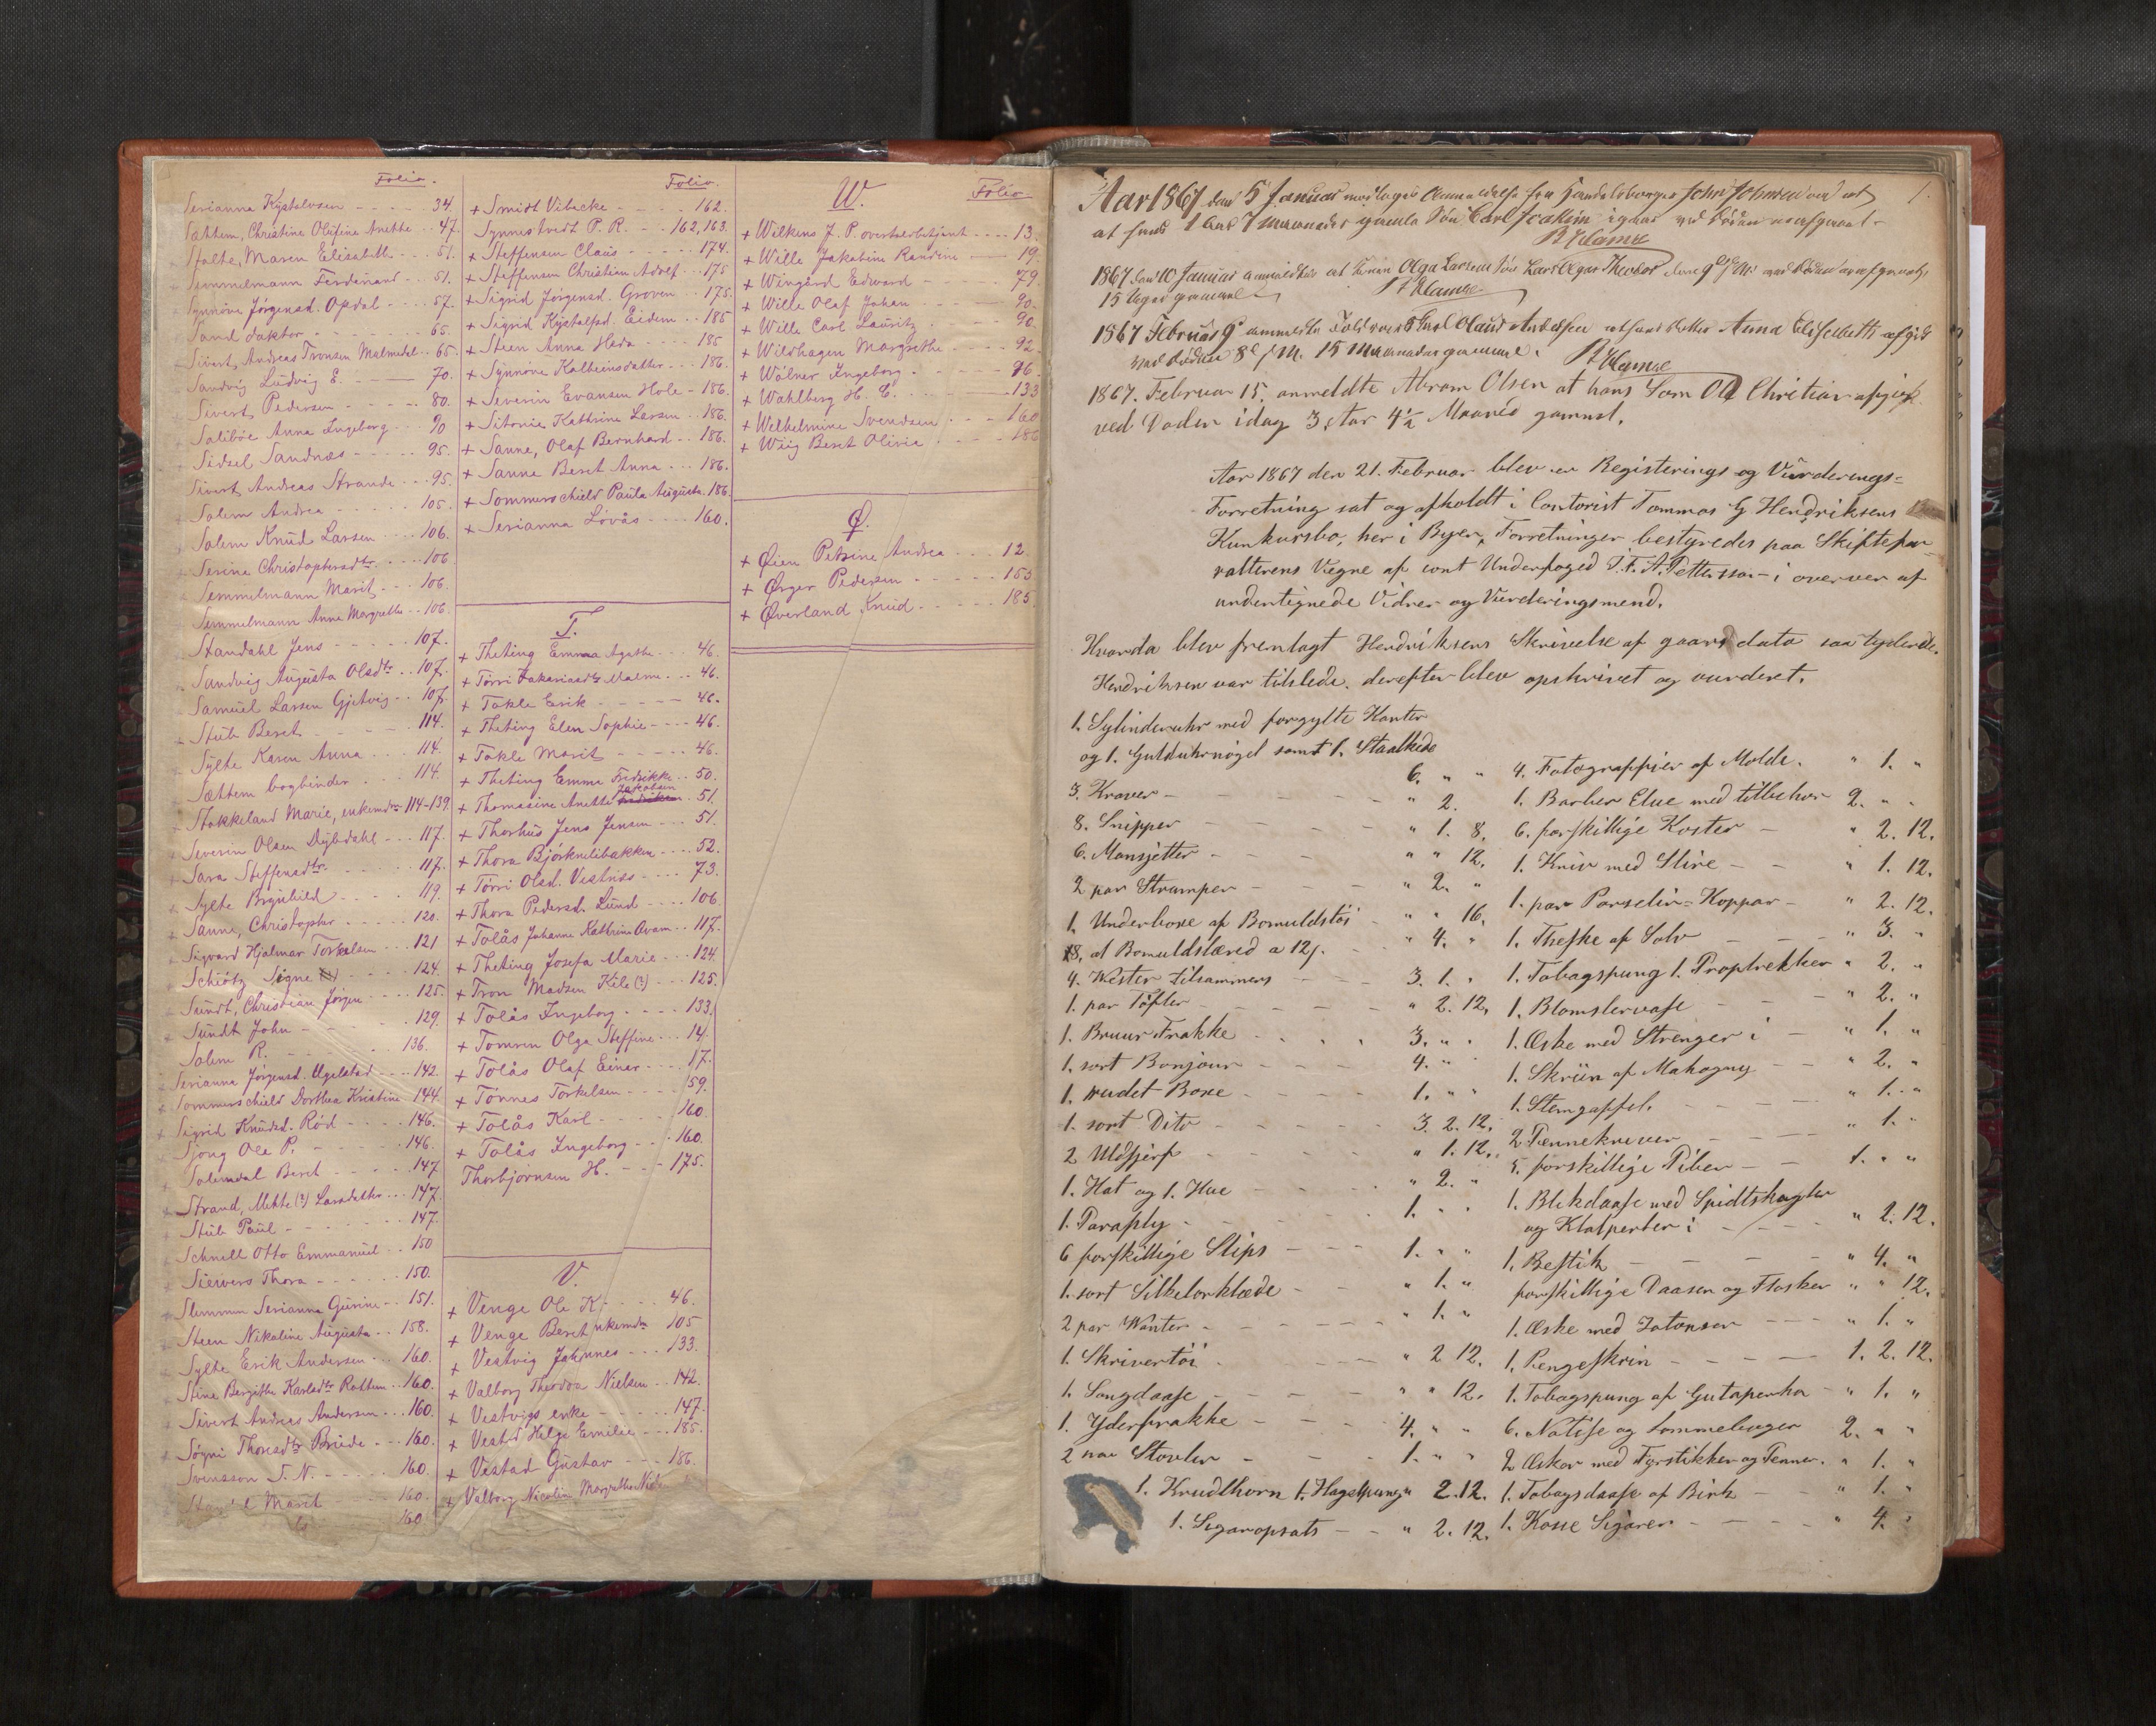 Folio.
Serianna Kystelvsen - - - - 34.
Sættem, Christine Olufine Anette . . 47.
Stolte, Maren Elisabeth - - - 51.
Semmelmann Ferdinand - - 51.
Synnöve Jörgensd. Opdal - - - 57.
Sand doktor - - - - - - - 65.
Sivert, Andreas Tronsen Malmedal . . 65.
Sandvig Ludvig E. - - - 70.
Sivert, Pedersen - - - - - 80.
Saliböe Anna Ingeborg - - - 90
Sidsel Sandnæs - - - - - 95.
Sivert Andreas Strande - - - 95.
Salem Andrea - - - - - 105.
Salem Knud Larsen - - - - 106.
Serina Christophersdtr. - - - - 106
Semmelmann Marit - - - 106.
Semmelmann Anna Margrethe . . 106.
Standahl Jens - - - - - 107.
Sandvig Augusta Olsdtr . . 107.
Samuel Larsen Gjetvig - - - 107.
Stub Beret - - - - - - 114.
Sylte Karen Anna - - 114.
Sættem bogbinder - - - 114.
Stokkeland Marie, enkemdm 114-139.
Severin Olsen Dybdahl - - - 117.
Sara Steffensdtr. - - - - - 117.
Sylte Brynhild - - - - 119.
Sanne, Christopher - - - - - 120.
Sigvard Hjalmar Torkelsen - - - 121
Schiötz Signe - - - - - 124.
Sundt, Christian Jörgen - - - - 125.
Sundt John - - - - - - 129.
Salem R. - - - - - - 136.
Serianna Jörgensd. Ugelstad - - - - 142.
Sommerschield Dorthea Kristine 144
Sigrid Knudsd. Röd - - - - - 146.
Sjong Ole P. - - - - - - 146.
Solemdal Beret - - - - - 147
Strand, Mehte (?) Larsdatter . . . 147.
Stub Paul - - - - - - - 147.
Schnell Otto Emmanuel . . 150
Siewers Thora - - - - - - 150.
Slemmen Serianna Gurine - - 151.
Steen Nikoline Augusta . . 158.
Sylte Erik Andersen - - - 160.
Stine Bergithe Karlsdtr Rottem . . 160.
Sivert Andreas Andersen - - - 160.
Sögni Thoresdtr Bride - - - 160.
Svensson S. N. - - - - - 160.
Marit - - - 160.
160.
Folio.
+ Smidt Vibecke - - - - - 162.
Synnestvedt P. R. - - - 162, 163.
+ Steffensen Claus - - - - - 174.
+ Steffensen Christian Adolf - - - 175
+ Sigrid Jörgensd. Groven - - - 175.
+ Sigrid Kystelfsd. Eidem - - 185
+ Steen Anna Hedv - - - - - 185
+ Synnöve Kolbeinsdatter - - - 186.
+ Severin Evansen Hole - - 186.
+ Sitonie Kathrine Larsen . . 186.
+ Sanne, Olaf Bernhard - - 186.
+ Sanne Beret Anna - - - 186.
+ Sommerschield Paula Augusta . 186.
+ Serianna Lövås - - - - 160.
T.
+ Theting Emma Agathe - - - 46.
+ Törri Zakariasdtr Malme . . . 46.
+ Takle Erik - - - - - 46.
+ Theting Elen Sophie - - - - 46.
+ Takle Marit - - - - - 46.
+ Theting Emma Fredrikke . . 50.
+ Thomasine Anette Jakobsen 51.
+ Thorhus Jens Jensen - - - 51.
+ Thora Björknelibakken - - - - 52.
+ Törri Olsd. Vestnæs - - - - 73.
+ Thora Pedersd. Lund - - - - 106
+ Tolås Johanne Kathrine Avam - - 117.
+ Theting Josefa Marie - - - 124.
+ Tron Madsen Kile (?) - - - 125.
+ Tolås Ingeborg - - - - - 133.
+ Tomren Olga Steffine - - - 14.
+ Tolås Olaf Einar - - - - 17.
+ Tönnes Torkelsen - - - - 59.
+ Tolås Karl - - - - - 160.
+ Tolås Ingeborg - - - 160.
Thorbjörnsen H. - - - 175.
V.
+ Venge Ole K. - - - - 46.
+ Venge Beret enkemdm 105
+ Vestvig Johannes - - - 133.
+ Valborg Theodora Nielsen . . 142.
+ Vestvigs enke - - - - - 147.
+ Vestad Helga Emilie - - - 185.
+ Vestad Gustav - - - - 186.
+ Valborg Nicoline Margrethe
W.
Folio
+ Wilkens J. P. overtoldbetjent - - - - 13.
+ Wille Jakobine Randine - - 19.
+ Wingård Edward - - - - - 79.
+ Wille Olaf Johan - - - - 90.
+ Wille Carl Lauritz - - - - 90.
+ Wildhagen Margrethe - - - - 92.
+ Wölner Ingeborg - - - - - 96.
+ Wahlberg H. C. - - - - - 133
+ Wilhelmine Svendsen - - - - 160
+ Wiig Beret Oliria - - - - 186
Ø.
+ Øien Petrine Andrea - - - - 12.
+ Ørger Pedersen - - - - - 153
+ Øverland Knud - - - - - 185.
1.
Aar 1867 den 5 Januar modtoges Anmeldelse fra Handelsborger John Johnsen ved at
at hans 1 Aar 7 Maaneder gamle Sön Carl Joakim igaar ved Döden er afgaaet.
1867 den 10 Januar anmeldtes at Olga Larsens Sön Lars Olgar Theodor den 9de ved Döden er afgaaet,
15 Uger gammel
1867 Februar 9de anmeldte Toldroer Carl Olaus Andersen at hans Datter Anna Elisabeth afgik
ved Döden 8de d. M. 15 Maaneder gammel.
1867. Februar 15. anmeldte Abram Olsen at hans Søn Ole Christian afgik
ved Døden idag 3 Aar 4½ Maaned gammel.
Aar 1867 den 21. Februar blev en Registerings og Vürderings=
Forretning sat og afholdt i Contorist Tommas G. Hendriksens
Kunkursbo, her i Byen, Forretningen bestyredes paa Skiftefor=
valterens Vegne af const Underfoged J. F. A. Petterssen i overver af
undertegnede Vidner og Vurderingsmend.
Hvorda blev fremlagt Hendriksens Skrivelse af gaars dato saa lydende.
Hendriksen var tilstede. derefter blev opskrivet og vurderet.
1. Sylinderuhr med forgylte Kanter
og 1. Guldsuhrnögel samt 1. Staalkede 6. " "
3. Kraver - - - - - - " 2.
8. Snipper - - - - - " 1. 8.
6. Mansjetter - - - - " " 12.
2 par Strømper - - - - " 2. "
1. Underboxe af Bomuldstöi - " " 16.
8. al Bomuldslærred a 12 s. - - " 4. "
4. Vester tilsammens - - - 3. 1. "
1. par Töfler - - - - - " 2. 12.
1. Bruun Frakke - - - - 3. " "
1. sort Bonjour - - - - 4. " "
1. rudet Boxe - - - - 1. " "
1. sort Dito - - - - - - 3. 2. 12.
2 Uldskjerf - - - - - " 1. 12.
1. Hat og 1. Hue - - - - " 2. "
1. Paraply - - - - - 1. " "
6 forskillige Slips - - - 1. " "
1. sort Silketørklæde - - " 1. "
2 par Wanter - - - - - " 1. "
1. Skrivertöi - - - - " 2 12.
1. Sengdaase - - - - " " 12.
1. Yderfrakke - - - - 4. " "
2 par Stovler - - - - 1. " "
1. Krudthorn 1. Hagelpung " 2. 12.
1. Segaropsats - - " 2. 12.
4. Fotograppier af Molde. " 1. "
1. Barber Etue med tilbehor 2. " "
6. forskillige Koster - " 2. 12.
1. Kniv med Slire - - " 1. 12.
1. par Porselin=Koppar - " 2. 12.
1. Theske af Solv - - " 3. "
1. Tobagspung 1. Proptrekker " 2. "
1. Blomstervase - - - " 2. "
1. Æske med Strenger i - " 1. "
1. Skriin af Mahogny - - " 2. "
1. Stemgaffel. - - - - " 1. "
2 Pennekniver - - - - " 1. "
5. forskillige Piber - - 1. " "
1. Blikdaase med Spidtskugler
og Klatperler i - - - - " 2. 12.
1. Bestik - - - - - " 4. "
forskillige Daaser og Flasker " " 12.
1. Æske med - - - " 1. "
1. Pengeskrin - - - - 1. 2. 12.
1. Tobagspung af Gutaperka - " 1. "
6. Notise og Lommebøger 2. " "
2 Æsker med Fyrstikker og Penner. " 1. "
1. Tobagsdaase af Birk - - " 1. "
1. Kasse Sigarer - - - - " 4. "